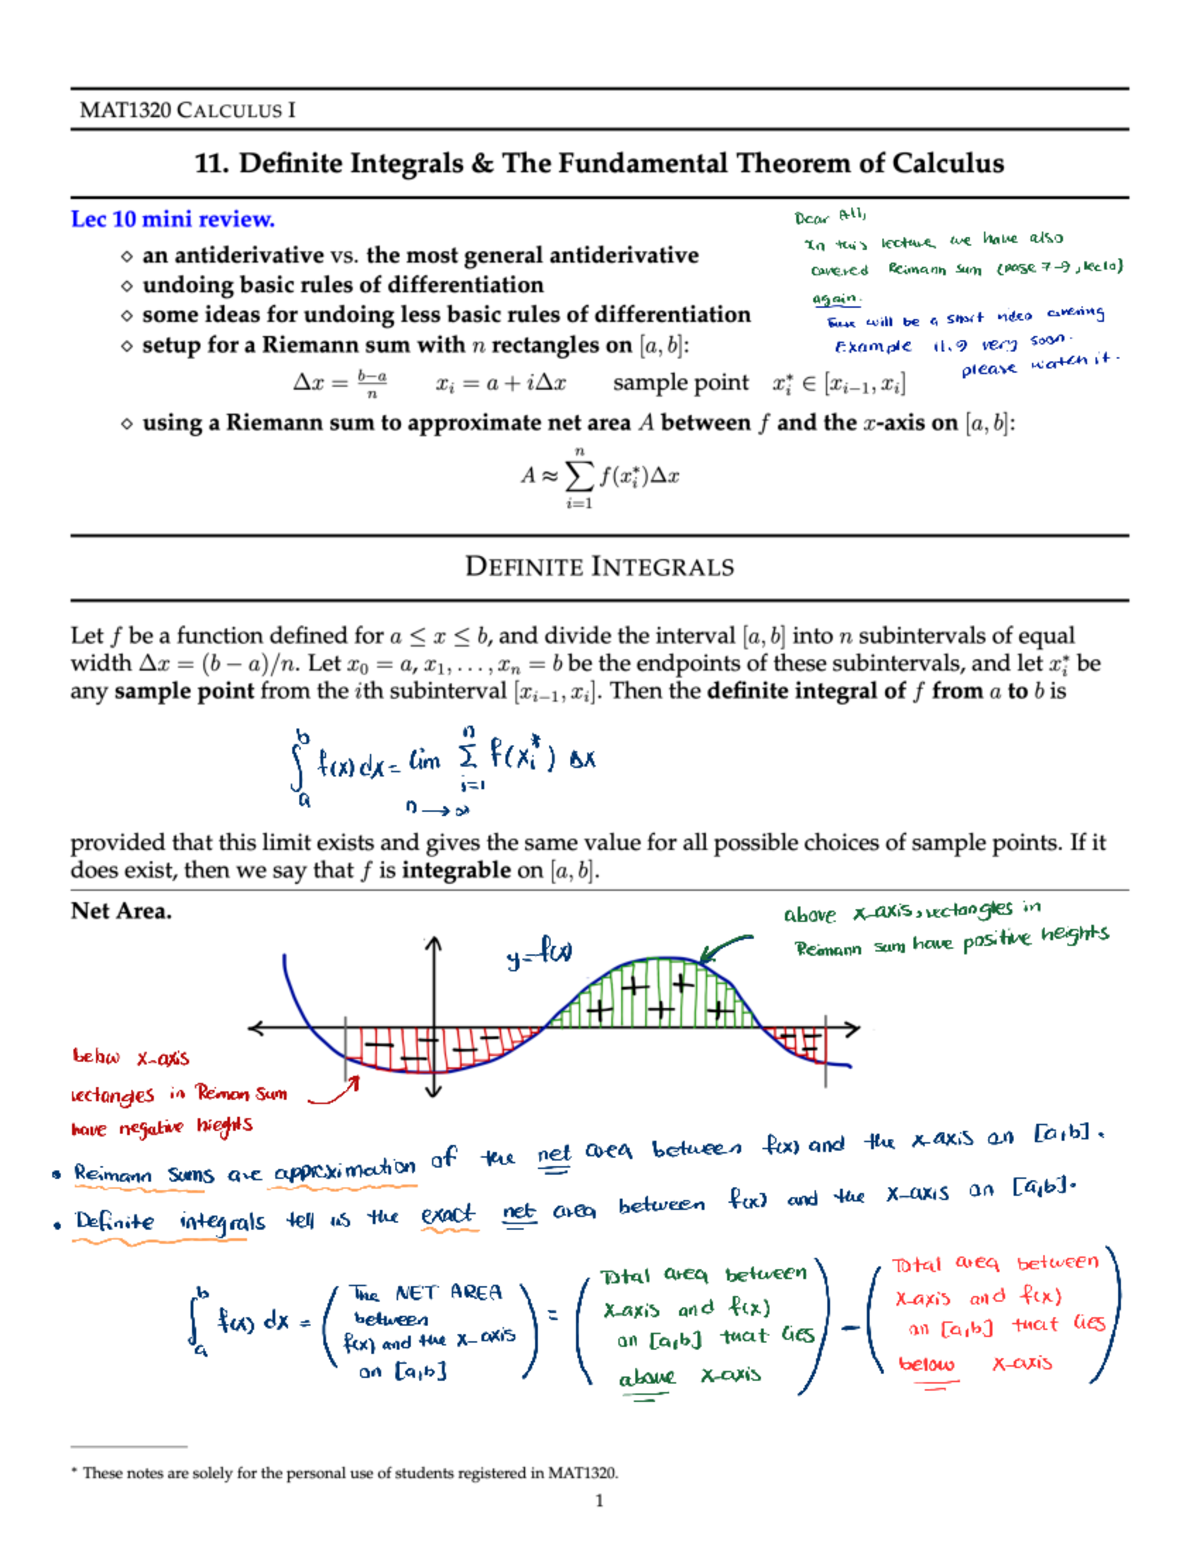 MAT1320 CALCULUS I
11. Definite Integrals & The Fundamental Theorem of Calculus
Lec 10 mini review.
Dear All,
In this lecture we have also
covered Reimann sum (page 7-9, lec10)
again.
There will be a short video covering
Example 11.9 very soon.
please watch it.
⋄ an antiderivative vs. the most general antiderivative
⋄ undoing basic rules of differentiation
⋄ some ideas for undoing less basic rules of differentiation
⋄ setup for a Riemann sum with n rectangles on [a, b]:
Δx = (b−a)/n   xᵢ = a + iΔx   sample point   xᵢ* ∈ [xᵢ₋₁, xᵢ]
⋄ using a Riemann sum to approximate net area A between f and the x-axis on [a, b]:
A ≈ ∑ᵢ₌₁ⁿ f(xᵢ*)Δx
DEFINITE INTEGRALS
Let f be a function defined for a ≤ x ≤ b, and divide the interval [a, b] into n subintervals of equal
width Δx = (b − a)/n. Let x₀ = a, x₁, . . . , xₙ = b be the endpoints of these subintervals, and let xᵢ* be
any sample point from the ith subinterval [xᵢ₋₁, xᵢ]. Then the definite integral of f from a to b is
∫ₐᵇ f(x) dx = lim n→∞ ∑ᵢ₌₁ⁿ f(xᵢ*) Δx
provided that this limit exists and gives the same value for all possible choices of sample points. If it
does exist, then we say that f is integrable on [a, b].
Net Area.
above x-axis, rectangles in
Reimann sum have positive heights
y=f(x)
below x-axis
rectangles in Reiman Sum
have negative hieghts
• Reimann Sums are approximation of the net area between f(x) and the x-axis on [a,b].
• Definite integrals tell us the exact net area between f(x) and the x-axis on [a,b].
∫ₐᵇ f(x) dx = (The NET AREA
between
f(x) and the x-axis
on [a,b])
= (Total area between
x-axis and f(x)
on [a,b] that lies
above x-axis)
− (Total area between
x-axis and f(x)
on [a,b] that lies
below x-axis)
* These notes are solely for the personal use of students registered in MAT1320.
1